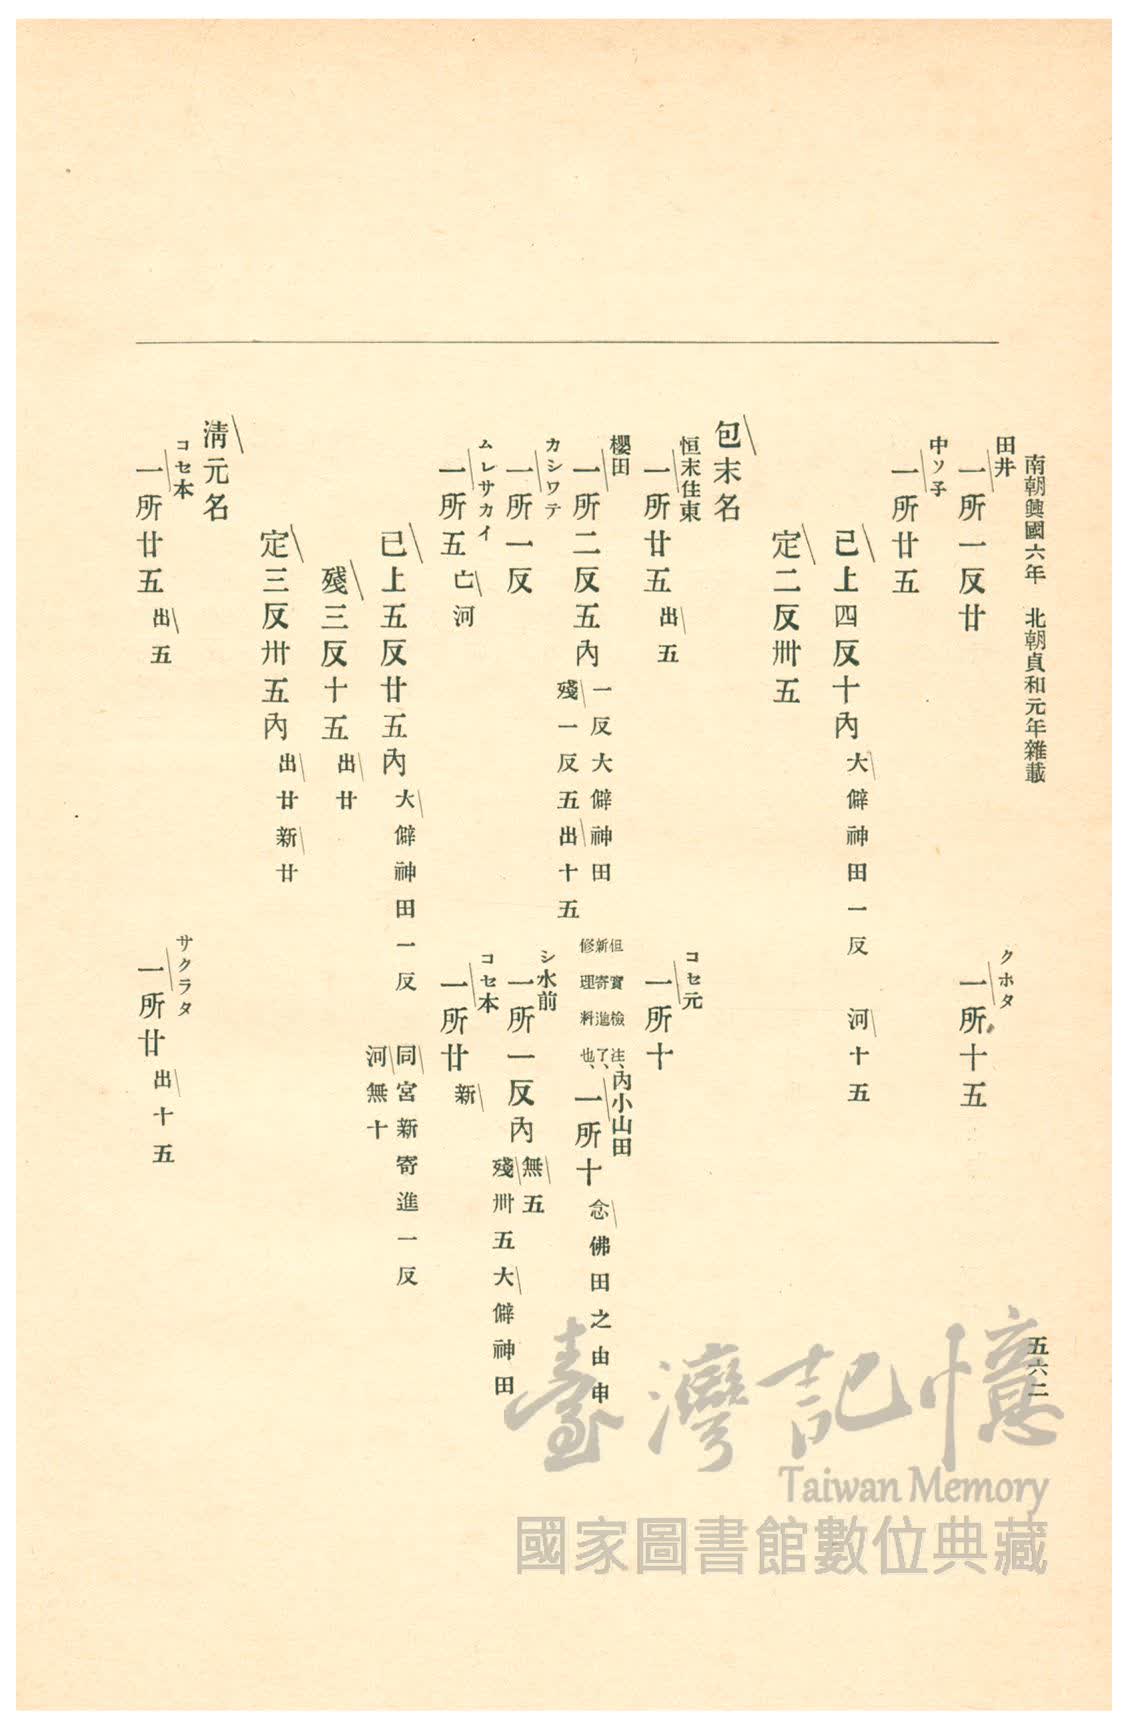 南朝興國六年　北朝貞和元年雜載
五六二
田井
一所一反廿
クホタ
一所十五
中ソ子
一所廿五
已上四反十內
大僻神田一反　河十五
定二反卌五
包末名
恒末住東
一所廿五
出五
コセ元
一所十
櫻田
一所二反五內
一反大僻神田
殘一反五出十五
但實檢注、
新寄進了、
修理料也、
內小山田
一所十
念佛田之由申
カシワテ
一所一反
シ水前
一所一反內
無五
殘卌五大僻神田
ムレサカイ
一所五
亡河
コセ本
一所廿
新
已上五反廿五內
大僻神田一反　同宮新寄進一反
河無十
殘三反十五
出廿
定三反卅五內
出廿新廿
淸元名
コセ本
一所廿五
出五
サクラタ
一所廿
出十五
臺灣記憶
Taiwan Memory
國家圖書館數位典藏